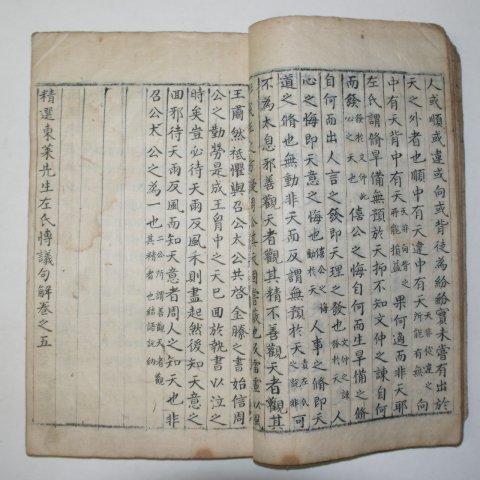 人或順或違或向或背徒為紛紛實未嘗有出於
天之外者也順中有天違中有天向
中有天背中有天果何適而非天耶
左氏謂脩旱備無預於天抑不知文仲之諫自何
而發僖公之悔自何而生旱備之脩
自何而出人言之發即天理之發也人
心之悔即天意之悔也人事之脩即天
道之脩也無動非天而反謂無預於天可
不為太息邪善觀天者觀其精不善觀天者觀其
王肅然祗懼與召公太公共啓金縢之書始信周
公之勤勞是成王胷中之天已回於執書以泣之
時矣豈必待天雨反風禾則盡起然後知天意之
回邪待天雨反風而知天意者周人之知天也非
召公太公之為一也二公所謂善觀天者觀其精者也
精選東萊先生左氏博議句解卷之五